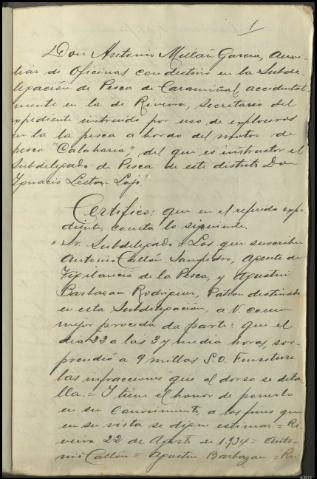 1
Don Antonio Mellán García, Auxi-
liar de Oficinas con destino en la Subde-
legación de Pesca de Caramiñal, accidental-
mente en la de Riveira, Secretario del
expediente instruido por uso de explosivos
en la pesca a bordo del motor de
pesca "Calaharia", del que es instructor el
Subdelegado de Pesca de este distrito Don
Ignacio Lestón
Certifico: que en el referido expe-
diente consta lo siguiente.
Sr. Subdelegado = Los que suscriben
Antonio Callón Sampedro, Agente de
Vigilancia de la Pesca, y Agustín
Barbazan Rodríguez, Patrón destinado
en esta Subdelegación, a V. como
mejor proceda da parte: que el
día 22 a las 3 y media horas sor-
prendió a 9 millas S.O. Finisterre
las infracciones que al dorso se deta-
lla = Y tiene el honor de ponerlo
en su conocimiento, a los fines que
en su vista se digne estimar = Ri-
veira 22 de Agosto en 1934 = Anto-
nio Callón = Agustín Barbazan =